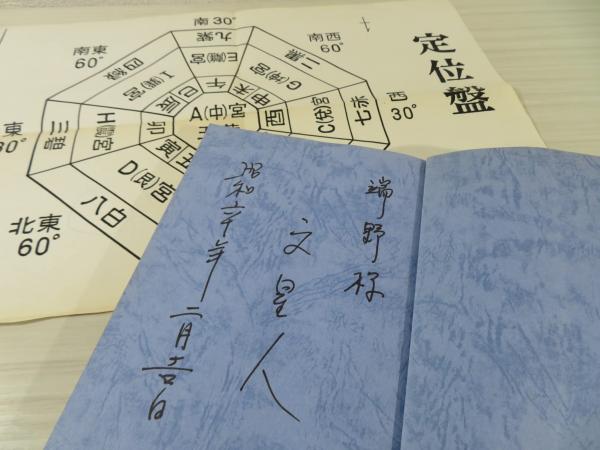 定位盤
南30°
南東
60°
南西
60°
西
30°
東
30°
北東
60°
九紫
四緑
二黒
七赤
三碧
八白
E(離)宮
I(巽)宮
G(坤)宮
C(兌)宮
H(震)宮
D(艮)宮
A(中)宮
午
巳
辰
未
申
酉
卯
寅
端野様
文皇人
昭和六十年二月吉日